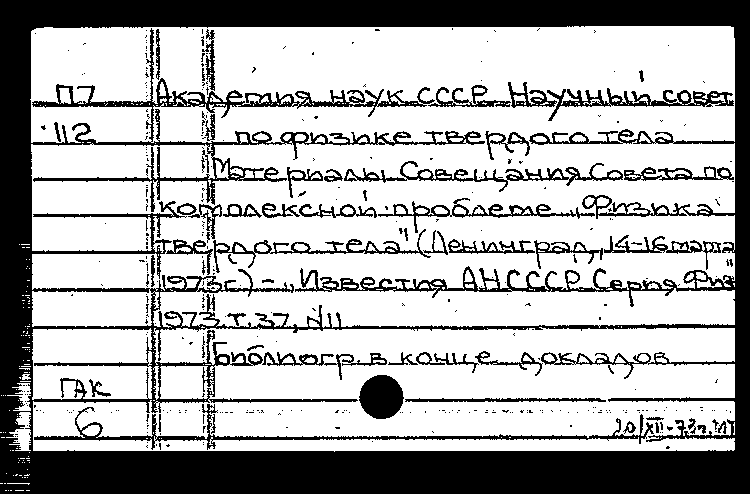 П7 Академия наук СССР Научный совет
112 по физике твердого тела
Материалы Совещания Совета по
комплексной проблеме „Физика
твердого тела" (Ленинград, 14-16 марта
1973г.) - „Известия АН СССР Серия Физ"
1973. т. 37, N11
Библиогр. в конце докладов
ГАК
6
20/XII-73г.